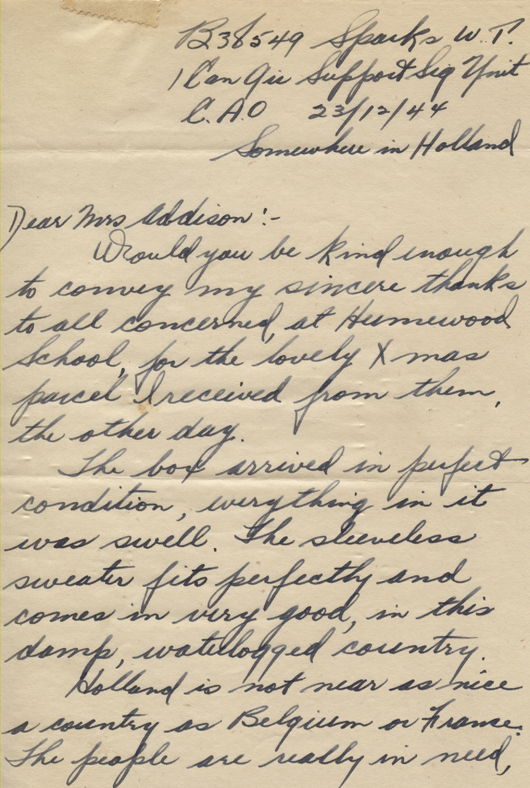 B238549 Sparks W. T.
1 Can Air Support Sig Unit
C.A.O 23/12/44
Somewhere in Holland
Dear Mrs Addison:-
Would you be kind enough
to convey my sincere thanks
to all concerned, at Humewood
School, for the lovely Xmas
parcel I received from them,
the other day.
The box arrived in perfect
condition, everything in it
was swell. The sleeveless
sweater fits perfectly and
comes in very good, in this
damp, waterlogged country.
Holland is not near as nice
a country as Belgium or France.
The people are really in need,